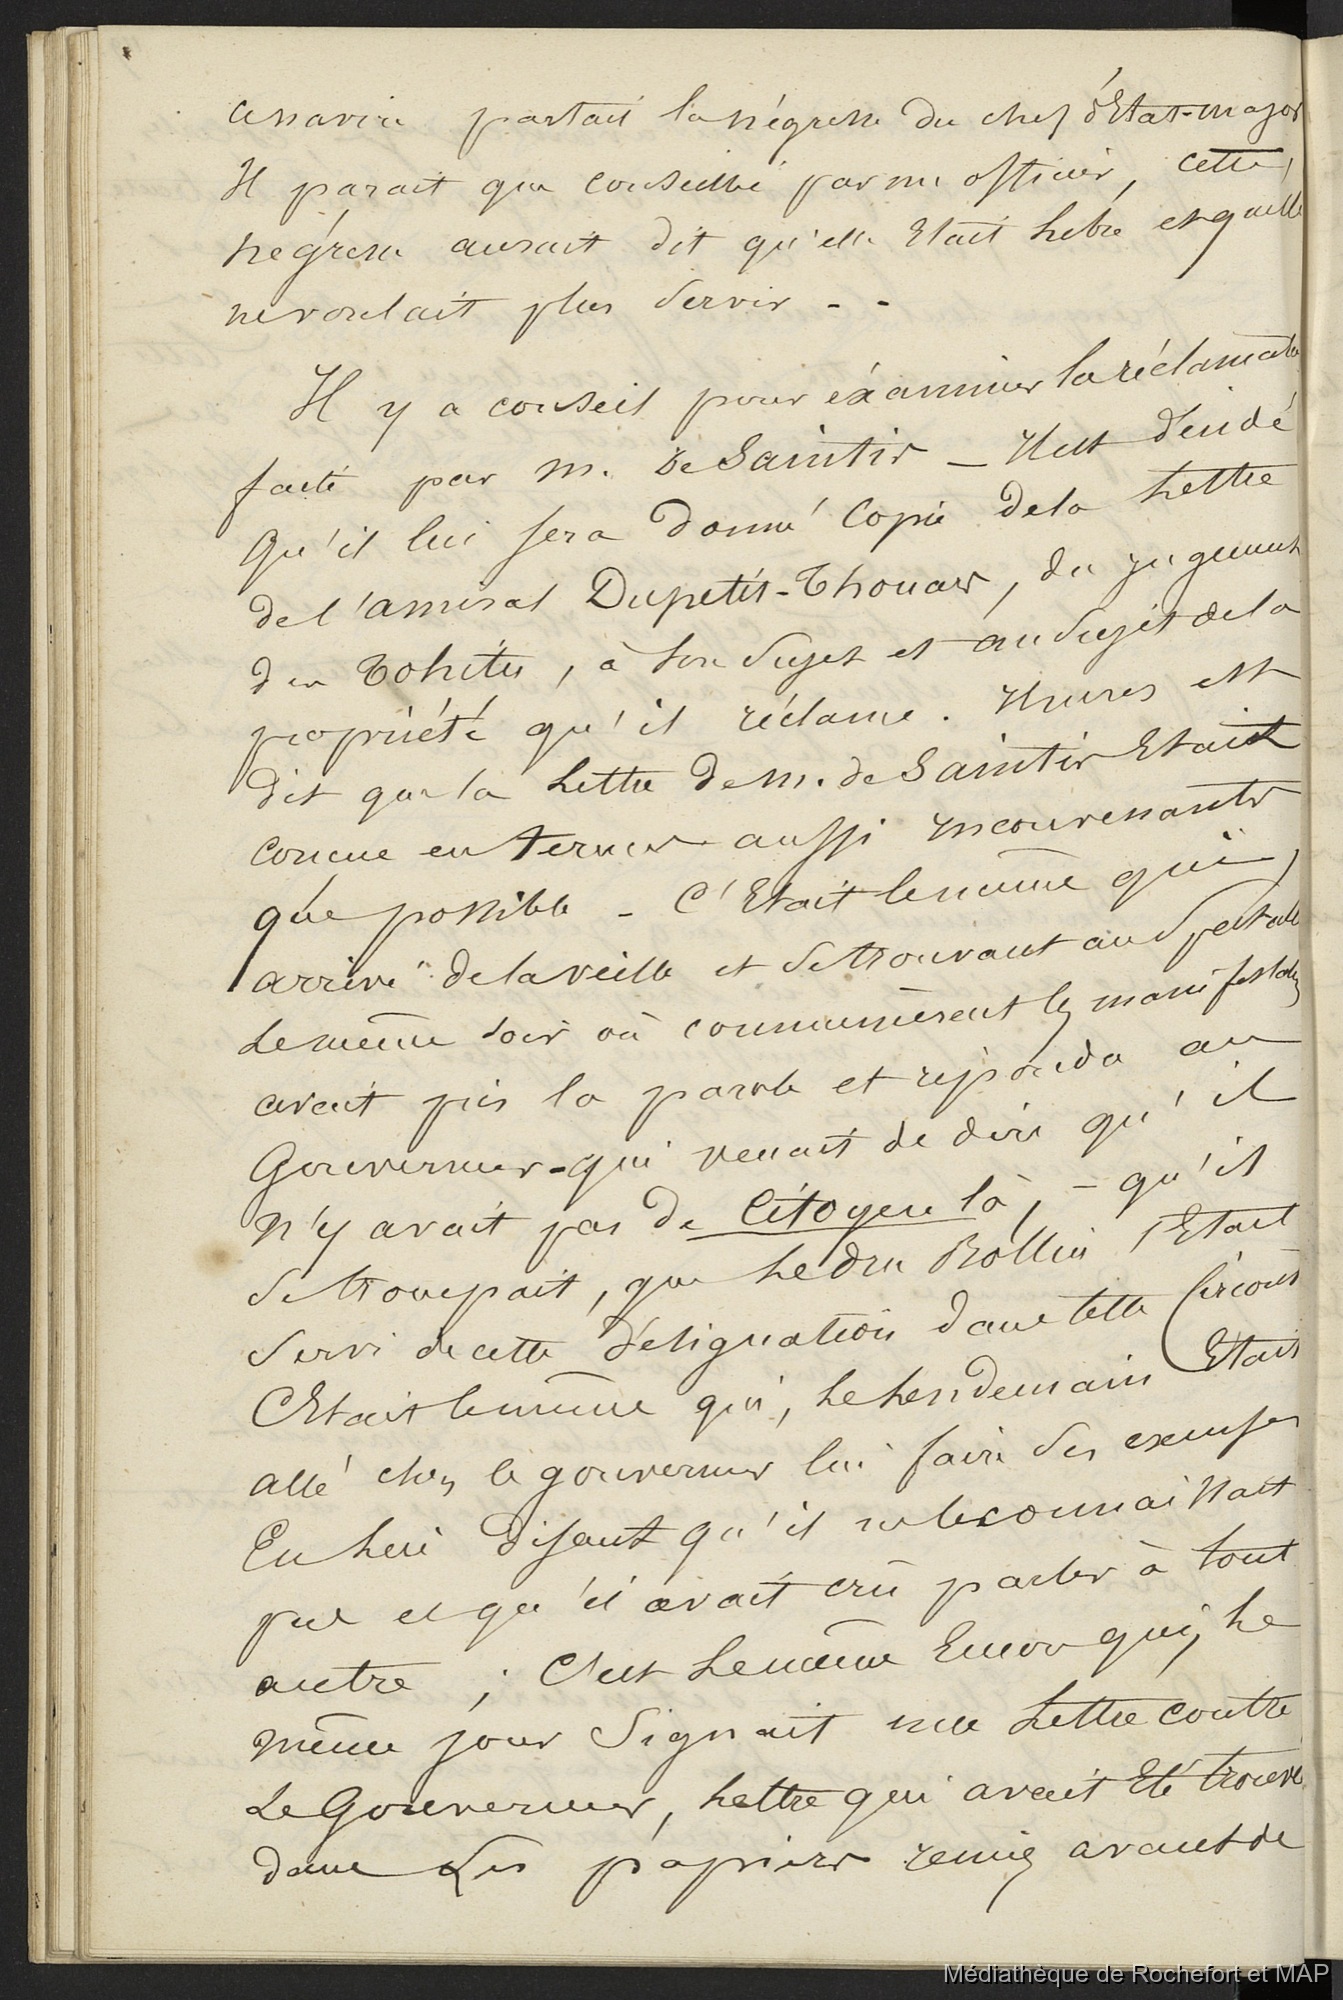 ce navire partait la négresse du chef d'Etat-major
Il parait que conseillé par un officier, cette
négresse aurait dit qu'elle Etait libre et qu'elle
ne voulait plus servir - -
Il y a conseil pour éxaminer la réclamation
faite par M. de Saintir _ Il est décidé
qu'il lui sera donné copie de la Lettre
de l'amiral Dupetit-Thouars, du jugement
des Tohitu, à son sujet et au sujet de la
propriété qu'il réclame.
dit que la Lettre de M. de Saintir Etait
concue en termes aussi inconvenants
que possible - C'Etait le même qui
arrivé de la veille et se trouvant au Spectacle
Le même soir où commencèrent les manifestations
avait pris la parole et répondu au
Gouverneur - qui venait de dire qu'il
n'y avait pas de Citoyen là, - qu'il
se trompait, que Ledru Rollin s'Etait
servi de cette désignation dans telle circons
C'Etait le même qui, le lendemain Etait
allé chez le gouverneur lui faire des excuses
En lui disant qu'il ne le connaissait
pas et qu'il avait crû parler à tout
autre ; C'est Le même Encor qui, le
même jour signait une Lettre contre
Le Gouverneur, Lettre qui avait Eté trouvé
dans Les papiers remis avant de
Médiathèque de Rochefort et MAP